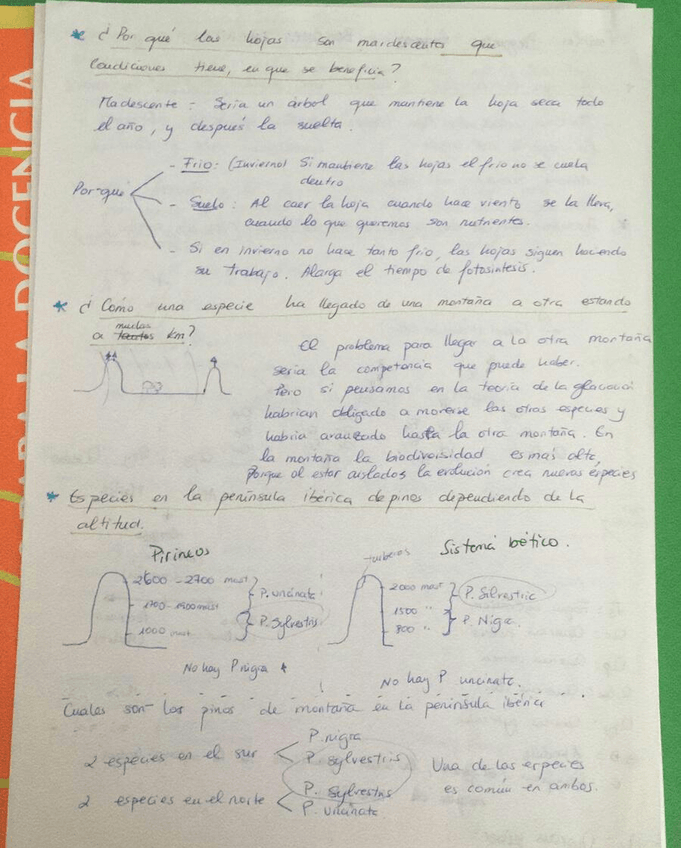 * ¿ Por qué las hojas son mardescentes que
condiciones tiene, en que se beneficia?
Madescente: Seria un árbol que mantiene la hoja seca todo
el año, y después la suelta.
Por qué
- Frio: (Invierno) Si mantiene las hojas el frio no se cuela
dentro
- Suelo: Al caer la hoja cuando hace viento se la lleva,
cuando lo que queremos son nutrientes.
- Si en invierno no hace tanto frio, las hojas siguen haciendo
su trabajo. Alarga el tiempo de fotosintesis.
* ¿ Como una especie ha llegado de una montaña a otra estando
a muchos km?
El problema para llegar a la otra montaña
seria la competencia que puede haber.
Pero si pensamos en la teoria de la
habrian obligado a moverse las otras especies y
habria avanzado hasta la otra montaña. En
la montaña la biodiversidad es mas alta,
Porque al estar aislados la evolución crea nuevas especies
* Especies en la península ibérica de pinos dependiendo de la
altitud.
Pirineos
2600 - 2700 msnt
1000 msnt
P. uncinata
P. Sylvestris
No hay P nigra
Sistema bético.
2000 msnt
1500 "
800 "
P. Silvestric
P. Nigra.
No hay P uncinata.
Cuales son los pinos de montaña en la península ibérica
2 especies en el sur
P. nigra
P. sylvestris
2 especies en el norte
P. Sylvestris
P. uncinata
Una de las especies
es común en ambos.
PARA LA DOCENCIA